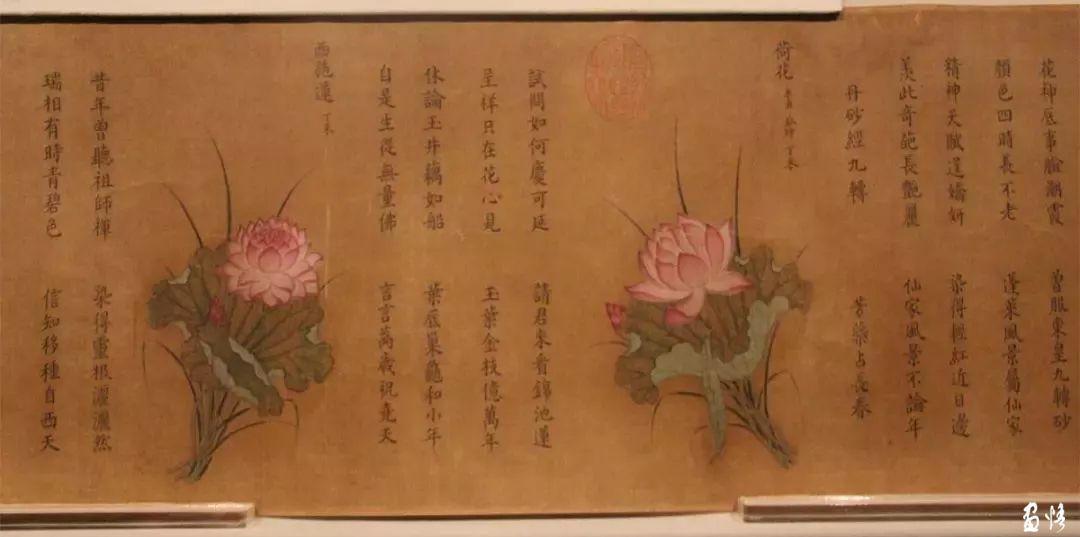 花神底事臉潮霞 曾服東皇九轉砂
顏色四時長不老 蓬萊風景屬仙家
精神天賦逞嬌妍 染得輕紅近日邊
羨此奇葩長艷麗 仙家風景不論年
丹砂經九轉 芳蘂占長春
荷花 癸卯 丁未
試問如何慶可延 請君來看錦池蓮
呈祥只在花心見 玉葉金枝億萬年
休論玉井藕如船 葉底巢龜和小年
自是生從無量佛 言言萬歲祝堯天
西施蓮 丁未
昔年曾聽祖師禪 染得靈根灑灑然
瑞相有時青碧色 信知移種自西天